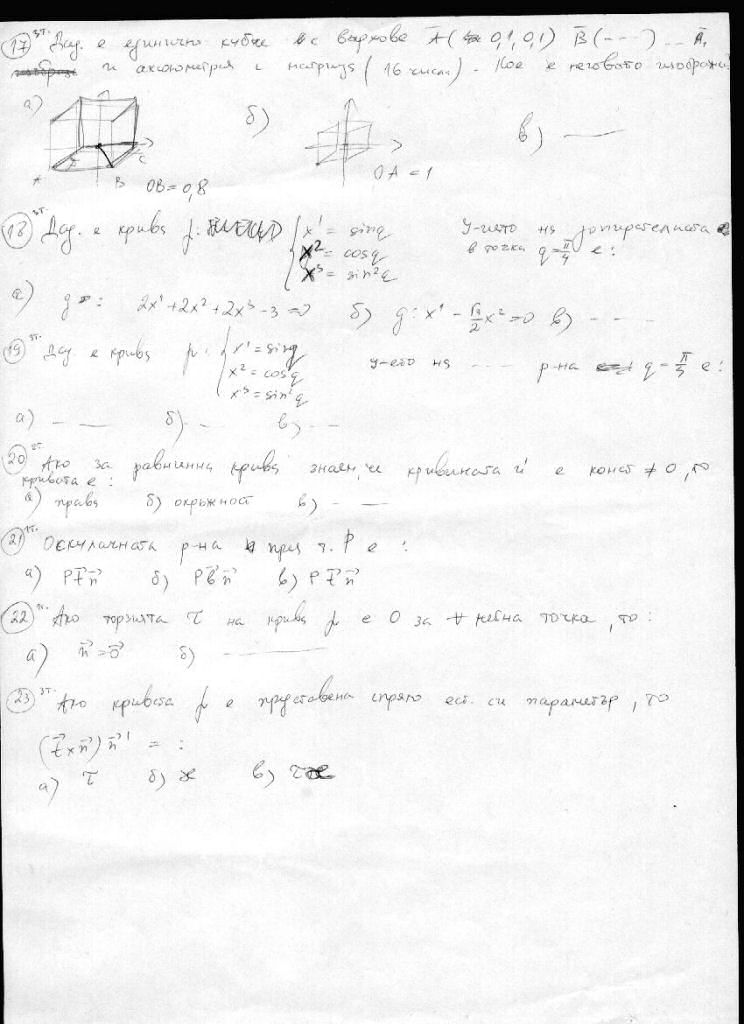 17 3т. Дад. е единично кубче с върхове A(0,1,0,1) B(---) .. A,
и аксонометрия с матрица (16 числа). Кое е неговото изображ
а) б) в) ——
A B C OB=0,8 OA=1
18 3т. Дад. е крива μ: { x¹ = sinq У-нието на допирателната
x² = cosq в точка q=π/4 е:
x³ = sin²q
а) g: 2x¹+2x²+2x³-3=0 б) g: x¹ - √3/2 x²=0 в) - - - -
19 3т. Дад. е крива μ: { x¹=sinq У-ето на ---- р-на q=π/3 е:
x²=cosq
x³=sin²q
а) — — б) — - в) - --
20 2т. Ако за равнинна крива знаем, че кривината ϰ е конст ≠ 0, то
кривата е:
а) права б) окръжност в) - —
21 1т. Оскулачната р-на при т. P е:
а) P t⃗ n⃗ б) P b⃗ n⃗ в) P t⃗ n⃗
22 1т. Ако торзията τ на крива μ е 0 за ∀ нейна точка, то:
а) n⃗=0⃗ б) ————
23 3т. Ако кривата μ е представена спрямо ест. си параметър, то
(t⃗×n⃗) n⃗' = :
а) τ б) ϰ в) τϰ